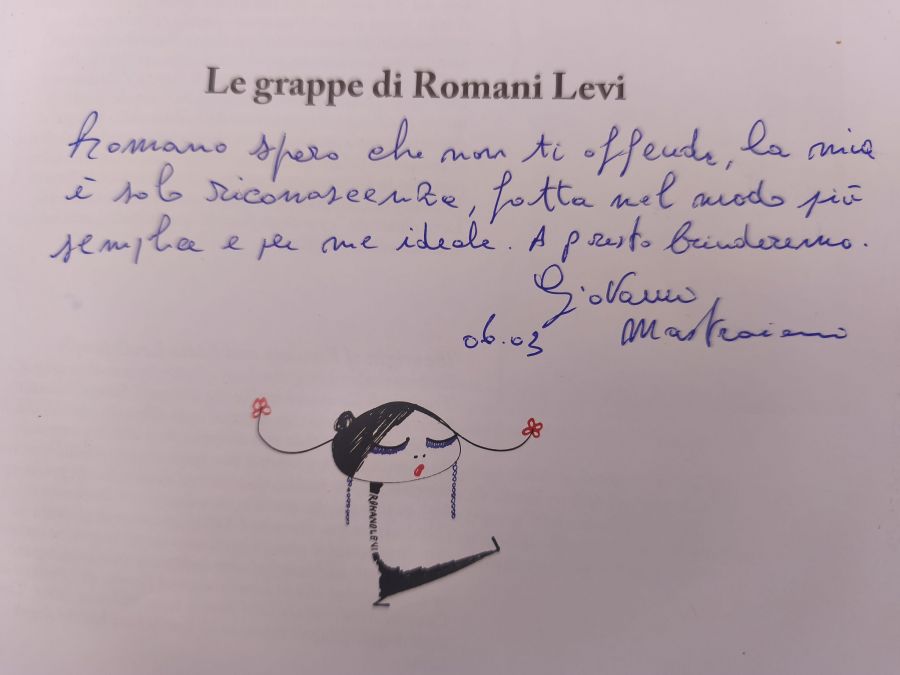 Le grappe di Romani Levi
Romano spero che non ti offende, la mia
è solo riconoscenza, fatta nel modo più
semplice e per me ideale. A presto brinderemo.
Giovanni
06.03 Mastroianni
ROMANO LEVI